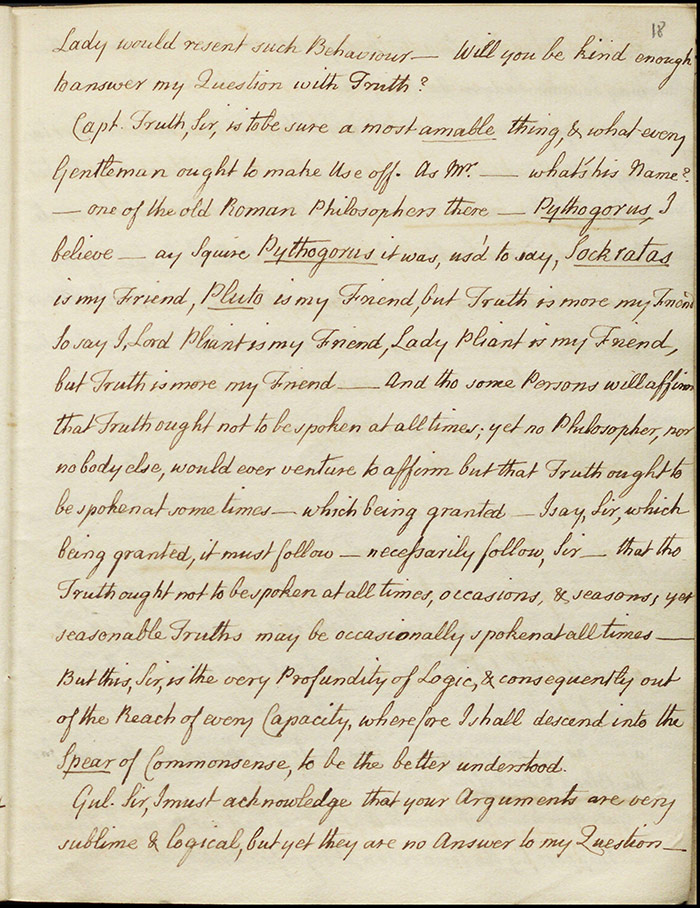 18
Lady would resent such Behaviour — Will you be kind enough
to answer my Question with Truth?
Capt. Truth, Sir, is to be sure a most amable thing, & what every
Gentleman ought to make Use off. As Mr. — what's his Name?
— one of the old Roman Philosophers there — Pythogorus, I
believe — ay Squire Pythogorus it was, us'd to say, Sockratas
is my Friend, Pluto is my Friend, but Truth is more my Friend
So say I, Lord Pliant is my Friend, Lady Pliant is my Friend,
but Truth is more my Friend — And tho some Persons will affirm
that Truth ought not to be spoken at all times; yet no Philosopher, nor
nobody else, would ever venture to affirm but that Truth ought to
be spoken at some times — which being granted — I say, Sir, which
being granted, it must follow — necessarily follow, Sir — that tho
Truth ought not to be spoken at all times, occasions, & seasons, yet
seasonable Truths may be occasionally spoken at all times —
But this, Sir, is the very Profundity of Logic, & consequently out
of the Reach of every Capacity, wherefore I shall descend into the
Spear of Commonsense, to be the better understood.
Gul. Sir, I must acknowledge that your Arguments are very
sublime & logical, but yet they are no Answer to my Question —